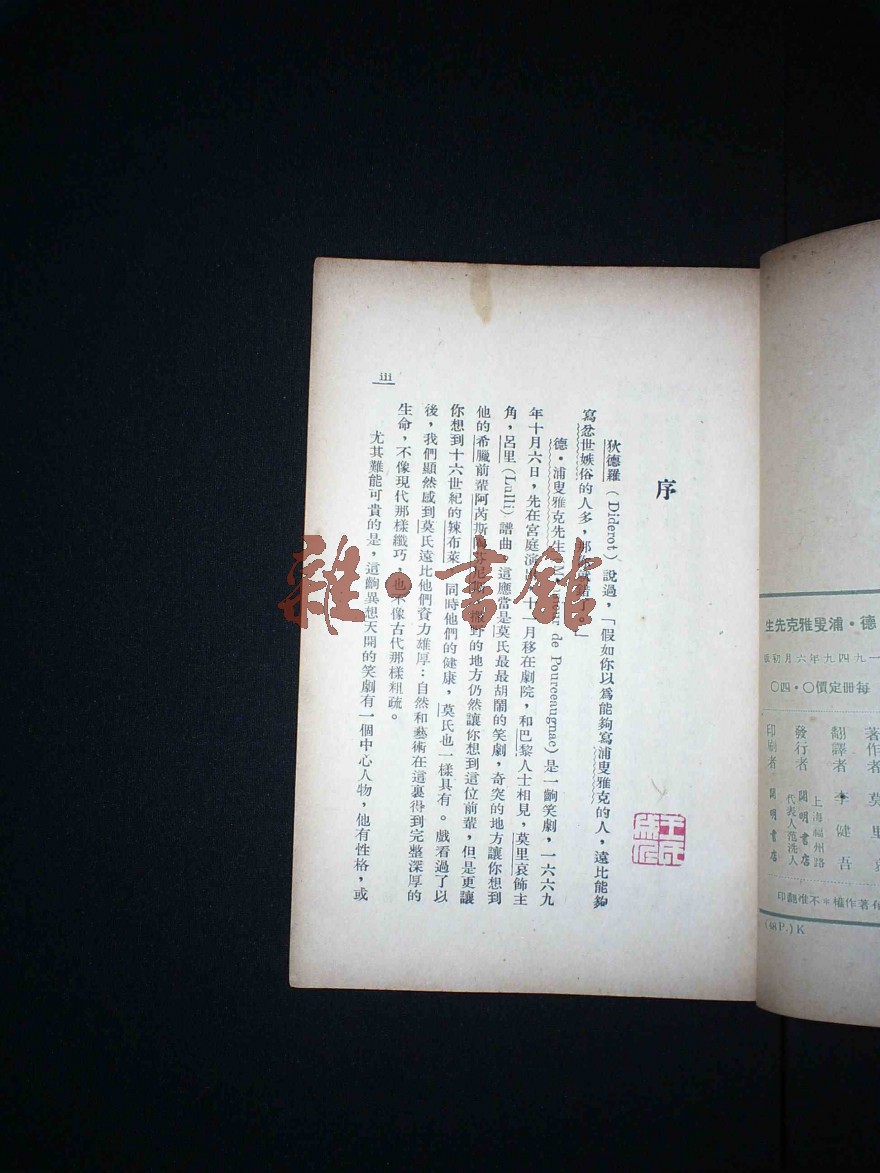 序
狄德羅（Diderot）說過，「假如你以爲能夠寫浦叟雅克的人，遠比能夠
寫忿世嫉俗的人多，那你就錯了。」
德·浦叟雅克先生 de Pourceaugnac）是一齣笑劇，一六六九
年十月六日，先在宮庭演出，十一月移在劇院，和巴黎人士相見，莫里哀飾主
角，呂里（Lulli）譜曲 這應當是莫氏最最胡鬧的笑劇，奇突的地方讓你想到
他的希臘前輩阿芮斯 芬尼 撒野的地方仍然讓你想到這位前輩，但是更讓
你想到十六世紀的辣布萊 同時他們的健康，莫氏也一樣具有。戲看過了以
後，我們顯然感到莫氏遠比他們資力雄厚：自然和藝術在這裏得到完整深厚的
生命，不像現代那樣纖巧，也不像古代那樣粗疏。
尤其難能可貴的是，這齣異想天開的笑劇有一個中心人物，他有性格，或
iii
德·浦叟雅克先生
一九四九年六月初版
每冊定價〇·四〇
著作者 莫里哀
翻譯者 李健吾
發行者 開明書店
上海福州路
代表人范洗人
印刷者 開明書店
有著作權*不准翻印
(88P.)K
雜·書館